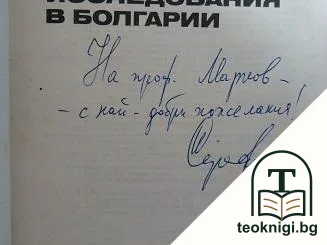 ИССЛЕДОВАНИЯ
В БОЛГАРИИ
На проф. Марков -
- с най - добри пожелания!
T
teoknigi.bg